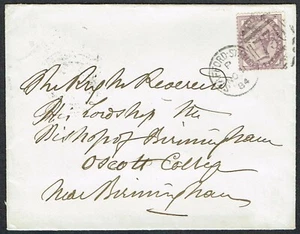 The Right Reverend
His Lordship the
Bishop of Birmingham
Oscott College
Near Birmingham
84